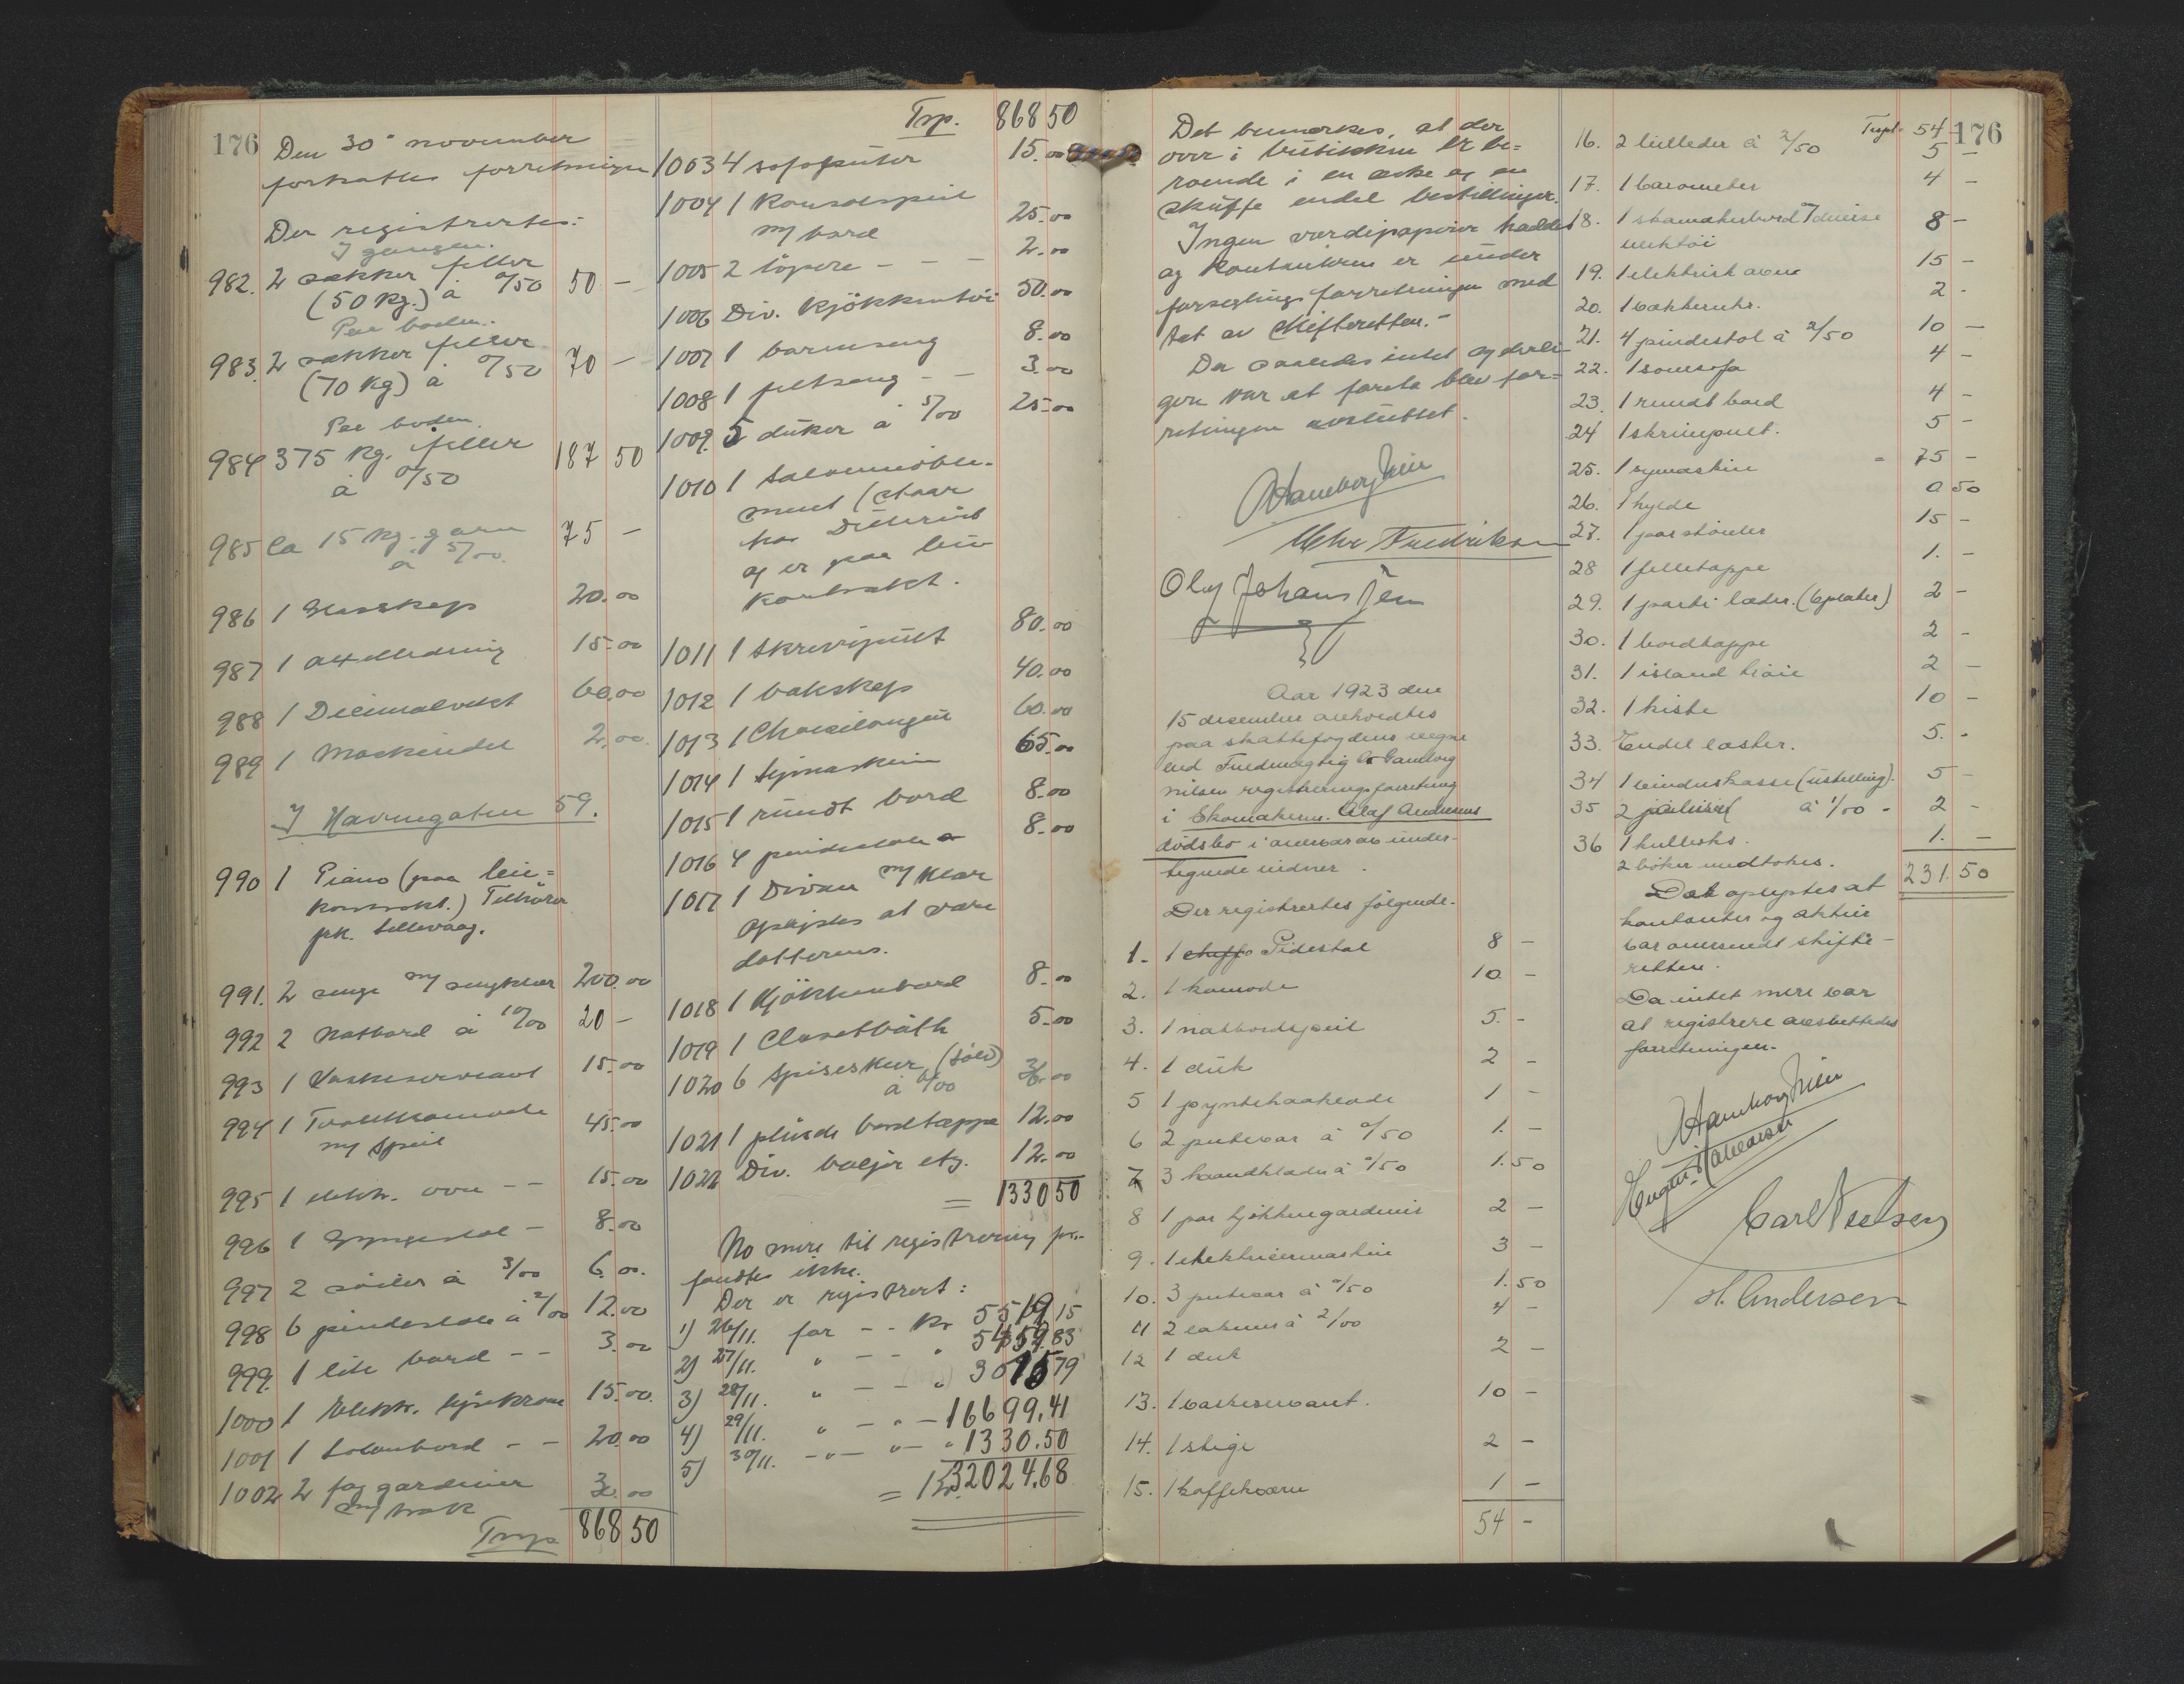 176
Den 30' november
fortsattes forretningen
Der registrertes:
I gangen.
982. 2 sækker filler
(50 kg.) á 0/50 50 -
Paa boden.
983. 2 sækker filler
(70 kg) á 0/50 70 -
Paa boden.
984 375 kg. filler
á 0/50 187 50
985 Ca 15 kg. garn
á 5/00. 75 -
986 1 Glasskap 20.00
987 1 15.00
988 1 Decimalvekt 60.00
989 1 2.00.
I Havnegaten 59.
990 1 Piano (paa leie=
kontrakt.) Tilhører
991. 2 senge m/ sengklær 200.00
992 2 Natbord á 10/00 20 -
993 1 Vaskeservant 15.00
994 1 Toilettkomode
m/ speil 45.00
995 1 elektr. ovn - - 15.00
996 1 Gyngestol - 8.00
997 2 søiler á 3/00 6.00.
998 6 pindestole á 2/00 12.00
999. 1 lite bord - - 3.00
1000 1 Elektr. lysekrone 15.00.
1001 1 Salonbord - - 20.00
1002 2 fag gardiner
3.00
Trsp 868 50
Trsp. 868 50
1003 4 sofaputer 15.00
1004 1 Konsolspeil
m/ bord 25.00
1005 2 löpere - - - 2.00
1006 Div. kjökkentöi 50.00
1007 1 barneseng 8.00
1008 1 feltseng - - 3.00
1009. 5 duker á 5/00 25.00
1010 1 Salonmöble-
ment (staar
hos
og er paa leie
kontrakt.
1011 1 skrivepult 80.00
1012 1 bokskap 40.00
1013 1 Chaiselongue 60.00
1014 1 Symaskin 65.00
1015 1 rundt bord 8.00
1016 4 pindestole 8.00
1017 1 Divan m/ klær
opgives at være
datterens.
1018 1 Kjökkenbord 8.00
1019 1 Closetbøtte 5.00
1020 6 Spiseskeer (sølv)
á 6/00 36.00
1021 1 plüsch bordtæppe 12.00
1022 Div. baljer etz. 12.00
= 1330 50
No mere til registrering for-
fandtes ikke.
Der er registrert:
1) 26/11. for - - Kr 5519,15
2) 27/11. " - - " 5459,83
3) 28/11. " - - " 3015 79
4) 29/11. " - " - 16699,41
5) 30/11. - " - " - " 1330.50
= Kr. 32024,68
Det bemerkes, at der
over i butikken er be=
roende i en æske og en
skuffe endel bestillinger.
Ingen værdipapirer haddes
og kontanterne er under
forseglingsforretningen med
tat av Skifteretten. -
Da saaledes intet og derli-
gere var at foreta blev for=
retningen avsluttet.
Chr Fredriksen
Olaf Johansen
Aar 1923 den
15 desember avholdtes
paa skattefogdens vegne
ved Fuldmægtig A Hamborg
nilsen registreringsforretning
i Skomakerm. Olaf Andersens
dödsbo i overvær av under-
tegnede vidner.
Der registrertes følgende.
1. 1 Pidestal 8 -
2. 1 komode 10 -
3. 1 natbordspeil 5. -
4. 1 duk 2 -
5 1 pyntehaandklæde 1 -
6 2 putevar á 0/50 1. -
7 3 haandklæder á 0/50 1.50
8 1 par kjøkkengardiner 2 -
9. 1 elektricermaskin 3 -
10. 3 putevar á 0/50 1.50
11 2 lakener á 2/00 4 -
12 1 duk 2 -
13. 1 vaskeservant. 10 -
14. 1 stige 2 -
15. 1 kaffekværn 1 -
54 -
176
Trspt. 54 -
16. 2 billeder á 2/50 5 -
17. 1 barometer 4 -
18. 1 skomakerbord m/ diverse
verktöi 8 -
19. 1 elektrisk ovn 15 -
20. 1 vækkeruhr. 2 -
21. 4 pindestol á 2/50 10 -
22. 1 sovesofa 4 -
23. 1 rundt bord 4 -
24 1 skrivepult. 5 -
25. 1 symaskin " 75 -
26. 1 hylde 0 50
27. 1 par støvler 15 -
28 1 filletæppe 1. -
29. 1 parti læder. (6 plater) 2 -
30. 1 bordtæppe 2 -
31. 1 island trøie 2 -
32. 1 kiste 10 -
33. Endel læster. 5. -
34 1 vinduskasse (utstilling). 5 -
35 2 á 1/00 - 2 -
36 1 kulboks. 1. -
2 bøker medtokes. 231.50
Det oplystes at
kontanter og aktier
var anvendt skifte-
retten.
Da intet mere var
at registrere avsluttedes
forretningen.
Carl Nielsen
A. Andersen